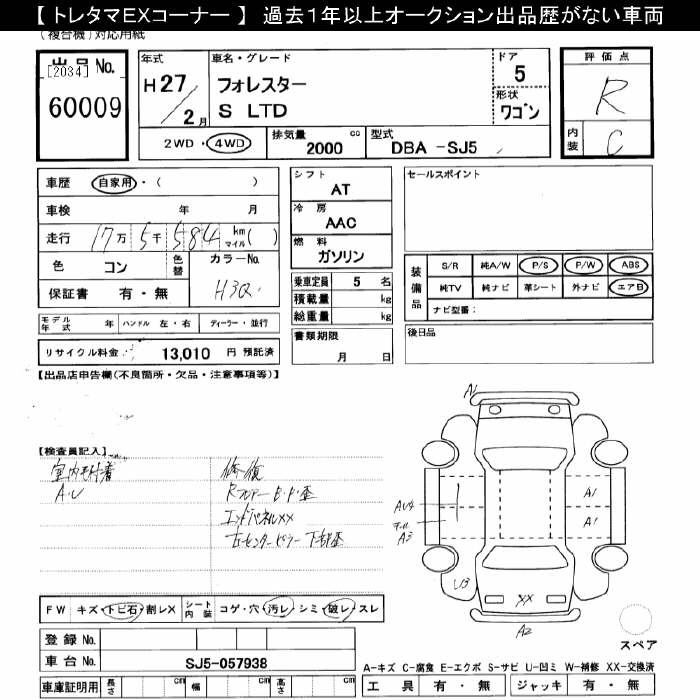 【 トレタマEXコーナー 】 過去１年以上オークション出品歴がない車両
(複合機)対応用紙
出品 No.
[2034]
60009
年式
H27/2月
車名・グレード
フォレスター
S LTD
ドア
5
形状
ワゴン
評価点
R
内装
C
2WD・4WD
排気量 2000 cc
型式 DBA -SJ5
車歴 自家用・( )
車検 年 月
走行 17万5千584 km マイル( )
色 コン 色替
カラーNo. H3Q
保証書 有・無
モデル年式 年 ハンドル 左・右 ディーラー・並行
リサイクル料金: 13,010 円 預託済
シフト
AT
冷房
AAC
燃料
ガソリン
乗車定員 5 名
積載量 kg
総重量 kg
書類期限
月 日
セールスポイント
装備品
S/R 純A/W P/S P/W ABS
純TV 純ナビ 革シート 外ナビ エアB
ナビ型番:
後日品
【出品店申告欄(不良箇所・欠品・注意事項等)】
【検査員記入】
A・U
修復
エンドパネルXX
右センターピラー下部歪
A1
A1
A1
A3
U3
XX
A2
FW キズ・トビ石・割レX
シート内装 コゲ・穴・汚レ・シミ・破レ・スレ
登録 No.
車台 No. SJ5-057938
車庫証明用 長さ cm 幅 cm 高さ cm
スペア
A-キズ C-腐食 E-エクボ S-サビ U-凹ミ W-補修 XX-交換済
工具 有・無 ジャッキ 有・無